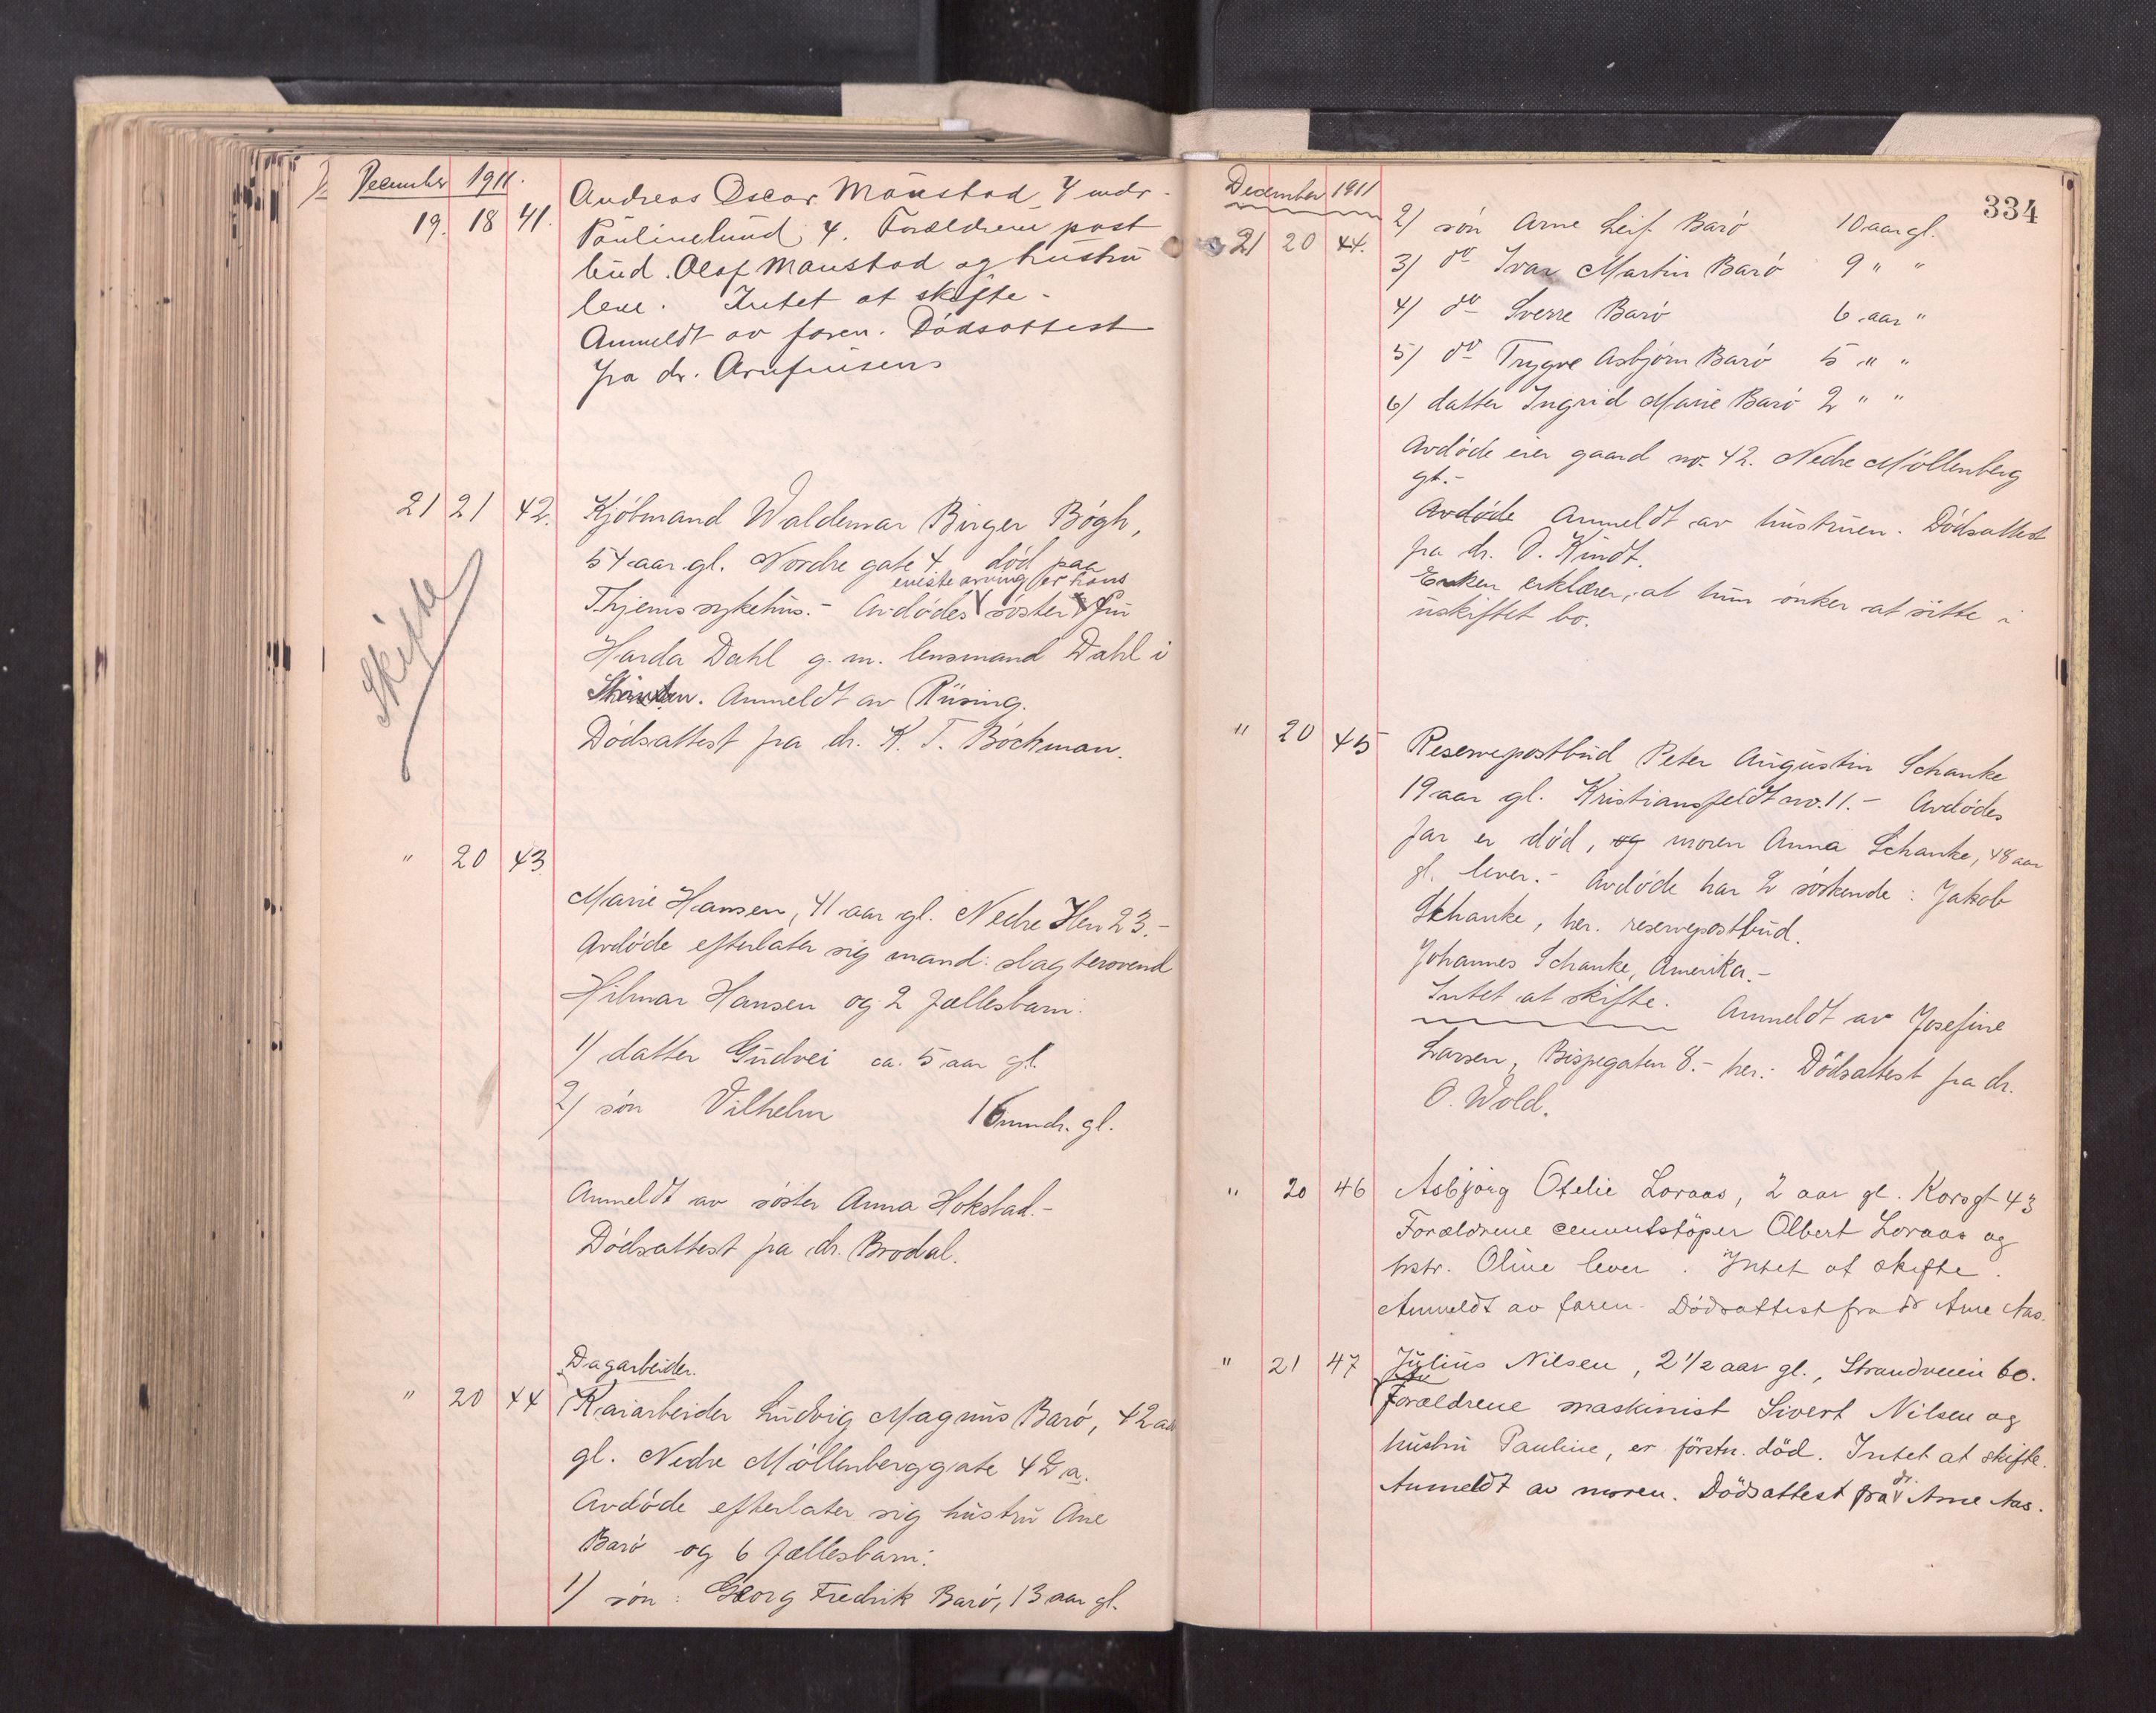 December 1911.
19. 18 41. Andreas Oscar Moustad 4 mdr.
Paulinelund 4. Forældrene post
bud. Olaf Moustad og hustru
leve. Intet at skifte.
Anmeldt av faren. Dødsattest
fra dr. Arnfinsens
21 21 42. Kjøbmand Waldemar Birger Bøgh,
54 aar gl. Nordre gate 4. død paa
eneste arving er hans
T.hjems sykehus.- Avdødes søster Fru
Harda Dahl g. m. lensmand Dahl i
Anmeldt av Rüsing.
Dødsattest fra dr. K. T. Bøckman.
Skifte
" 20 43
Marie Hansen, 41 aar gl. Nedre Ilen 23.-
Avdøde efterlater sig mand: slagtersvend
Hilmar Hansen og 2 fællesbarn:
1) datter Gudvei ca. 5 aar gl.
2) søn Vilhelm 16 mndr. gl.
Anmeldt av søster Anna Hokstad.-
Dødsattest fra dr. Brodal.
Dagarbeider.
" 20 44 Kaiarbeider Ludvig Magnus Barø, 42 aar
gl. Nedre Møllenberggate 42 a.
Avdøde efterlater sig hustru Ane
Barø og 6 fællesbarn:
1) søn: Georg Fredrik Barø, 13 aar gl.
December 1911
334
21 20 44. 2) søn Arne Leif Barø 10 aar gl.
3) do Ivar Martin Barø 9 " "
4) do Sverre Barø 6 aar "
5) do Trygve Asbjørn Barø 5 " "
6) datter Ingrid Marie Barø 2 " "
Avdøde eier gaard no. 42. Nedre Møllenberg
gt.-
Avdøde Anmeldt av hustruen. Dødsattest
fra dr. O. Kindt.
Enken erklærer, at hun ønker at sitte i
uskiftet bo.
" 20 45 Reservepostbud Peter Augustin Schanke
19 aar gl. Kristiansfeldt no. 11.- Avdødes
far er død, og moren Anna Schanke, 48 aar
gl. lever.- Avdøde har 2 søskende: Jakob
Schanke, her. reservepostbud.
Johannes Schanke, Amerika.-
Intet at skifte. Anmeldt av Josefine
Larsen, Bispegaten 8.- her: Dødsattest fra dr.
O. Wold.
" 20 46 Asbjørg Otelie Loraas, 2 aar gl. Korsgt 43
Forældrene cementstøper Albert Loraas og
hstr. Oline lever. Intet at skifte.
Anmeldt av faren. Dødsattest fra dr Arne Aas.
" 21 47 Julius Nilsen, 2 1/2 aar gl., Strandveien 60.
Forældrene maskinist Sivert Nilsen og
hustru Pauline, er førstn. død. Intet at skifte.
Anmeldt av moren. Dødsattest fra dr. Arne Aas.